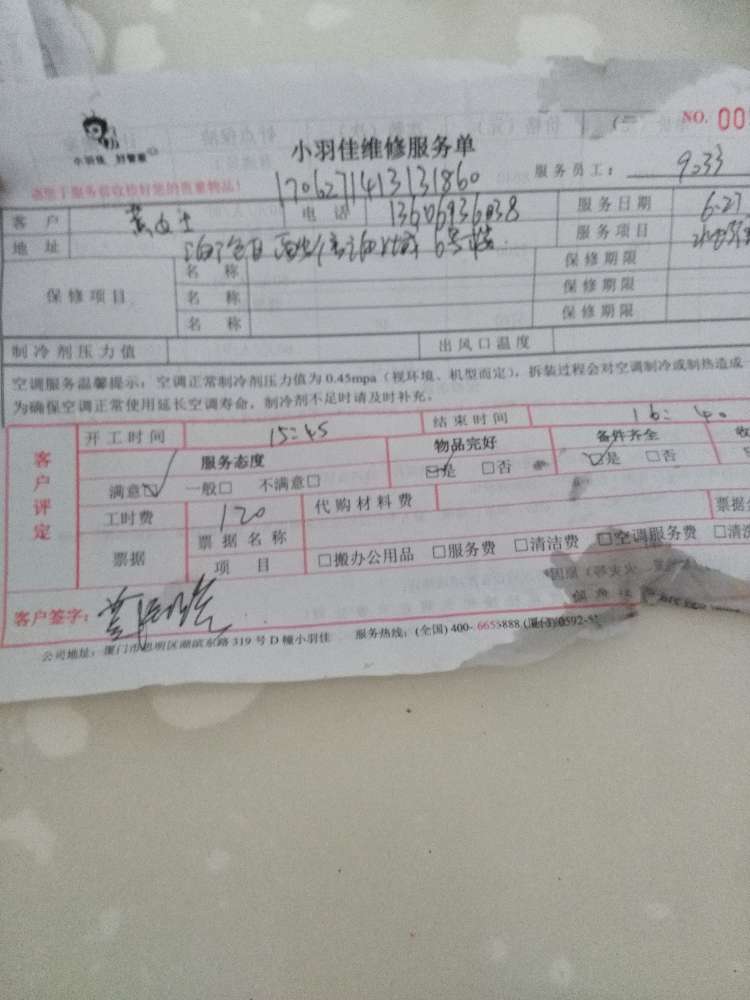 NO. 00
小羽佳 好管家
小羽佳维修服务单
服务员工: 9033
170627141313 1860
客户 黄女士 电话 13606936038 服务日期 6-27
地址 6号楼 服务项目
保修项目 名称 保修期限
名称 保修期限
名称 保修期限
制冷剂压力值 出风口温度
空调服务温馨提示:空调正常制冷剂压力值为0.45mpa(视环境、机型而定),拆装过程会对空调制冷或制热造成
为确保空调正常使用延长空调寿命,制冷剂不足时请及时补充。
客户评定 开工时间 15:45 结束时间 16:40
服务态度 物品完好 备件齐全
满意☑ 一般□ 不满意□ ☑是 □否 ☑是 □否
工时费 120 代购材料费
票据 票据名称 项目 □搬办公用品 □服务费 □清洁费 □空调服务费 □清洗
客户签字:
公司地址:厦门市思明区湖滨东路319号D幢小羽佳 服务热线:(全国)400-6655888 (厦门)0592-5